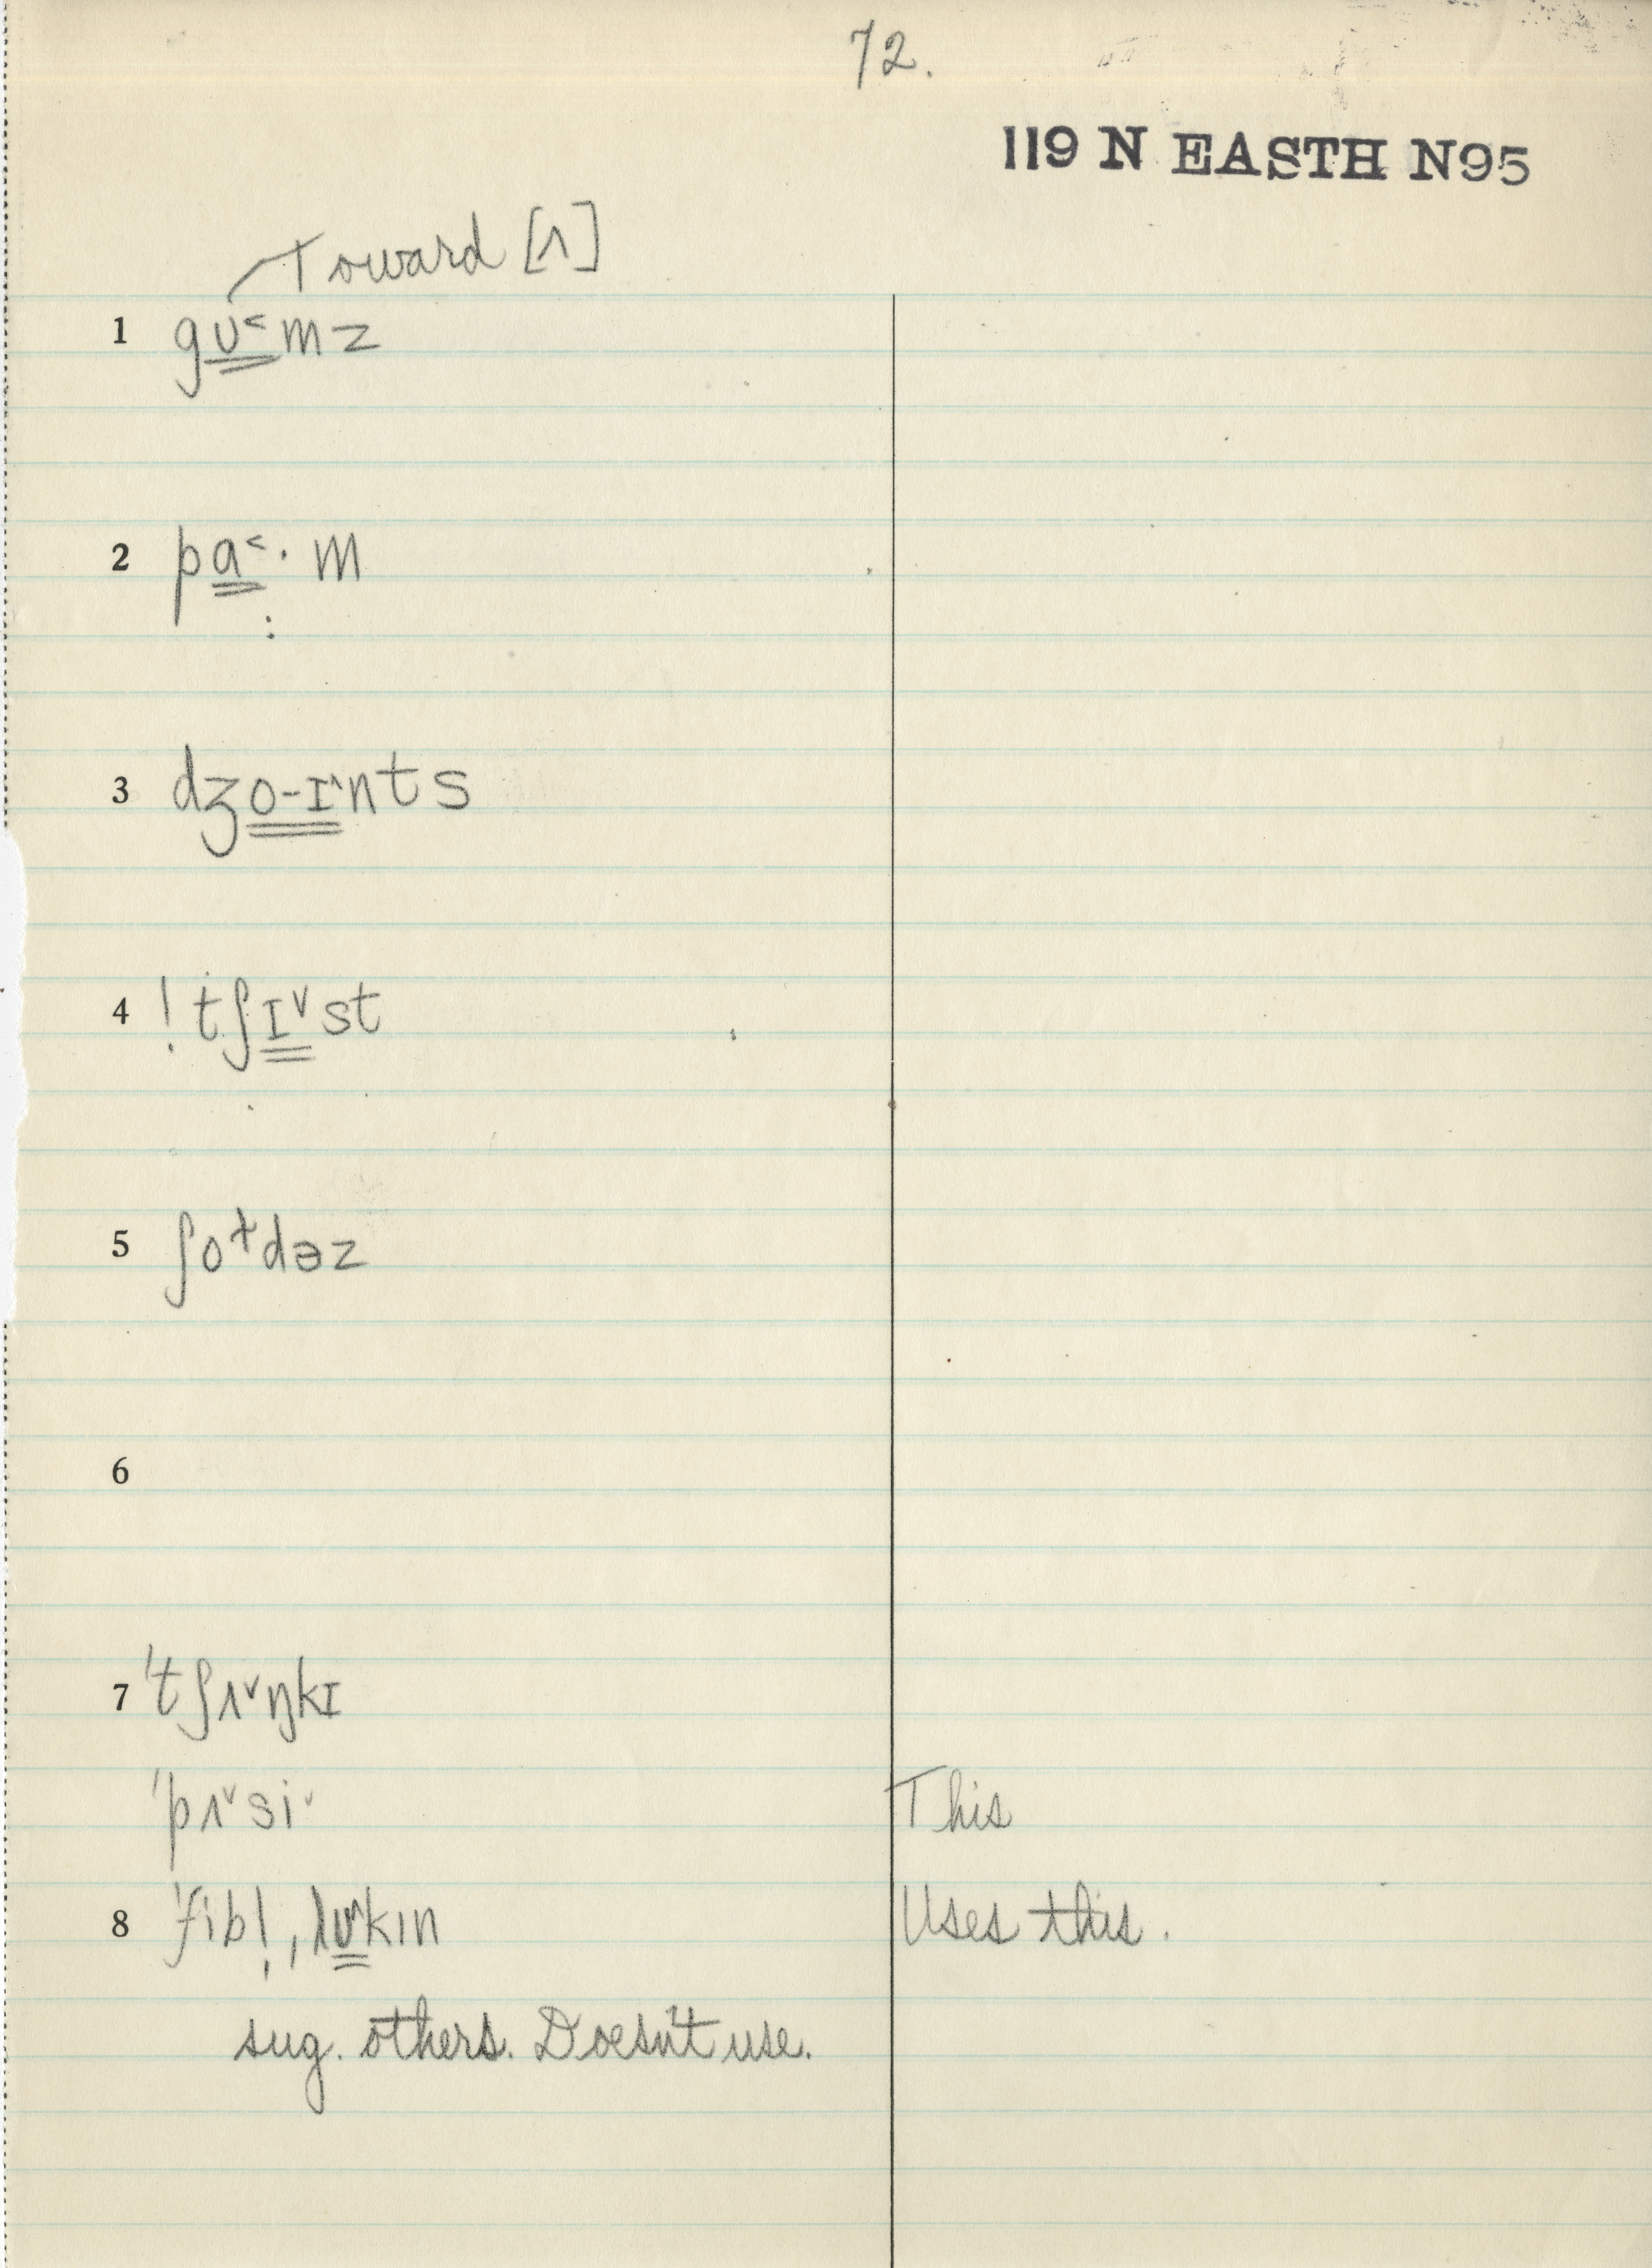 72.
119 N EASTH N95
Toward [ʌ]
1 gʊ˂mz
2 pɑ˂· m
:
3 dʒo-ɪ^nts
4 ! tʃɪ˅st
5 ʃo⁺dəz
6
7 'tʃʌ˅ŋkɪ
'pʌ˅si˅ This
8 'fib!, lʊ^kɪn Uses this.
sug. others. Doesn't use.